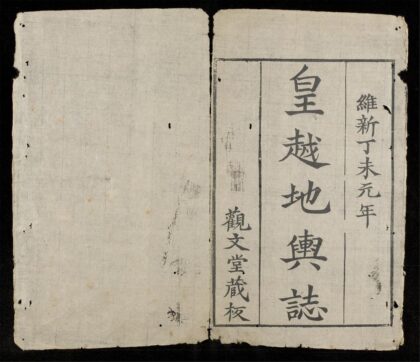 維新丁未元年
皇越地輿誌
觀文堂藏板